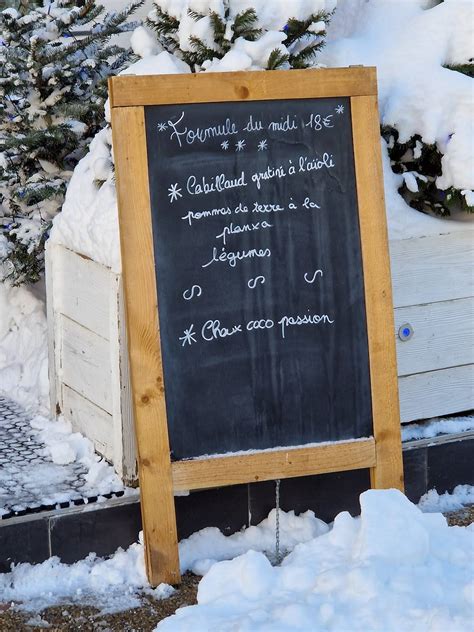 * Formule du midi 18€ *
* * *
* Cabillaud gratiné à l'aïoli
pommes de terre à la
planxa
légumes
* Choux coco passion